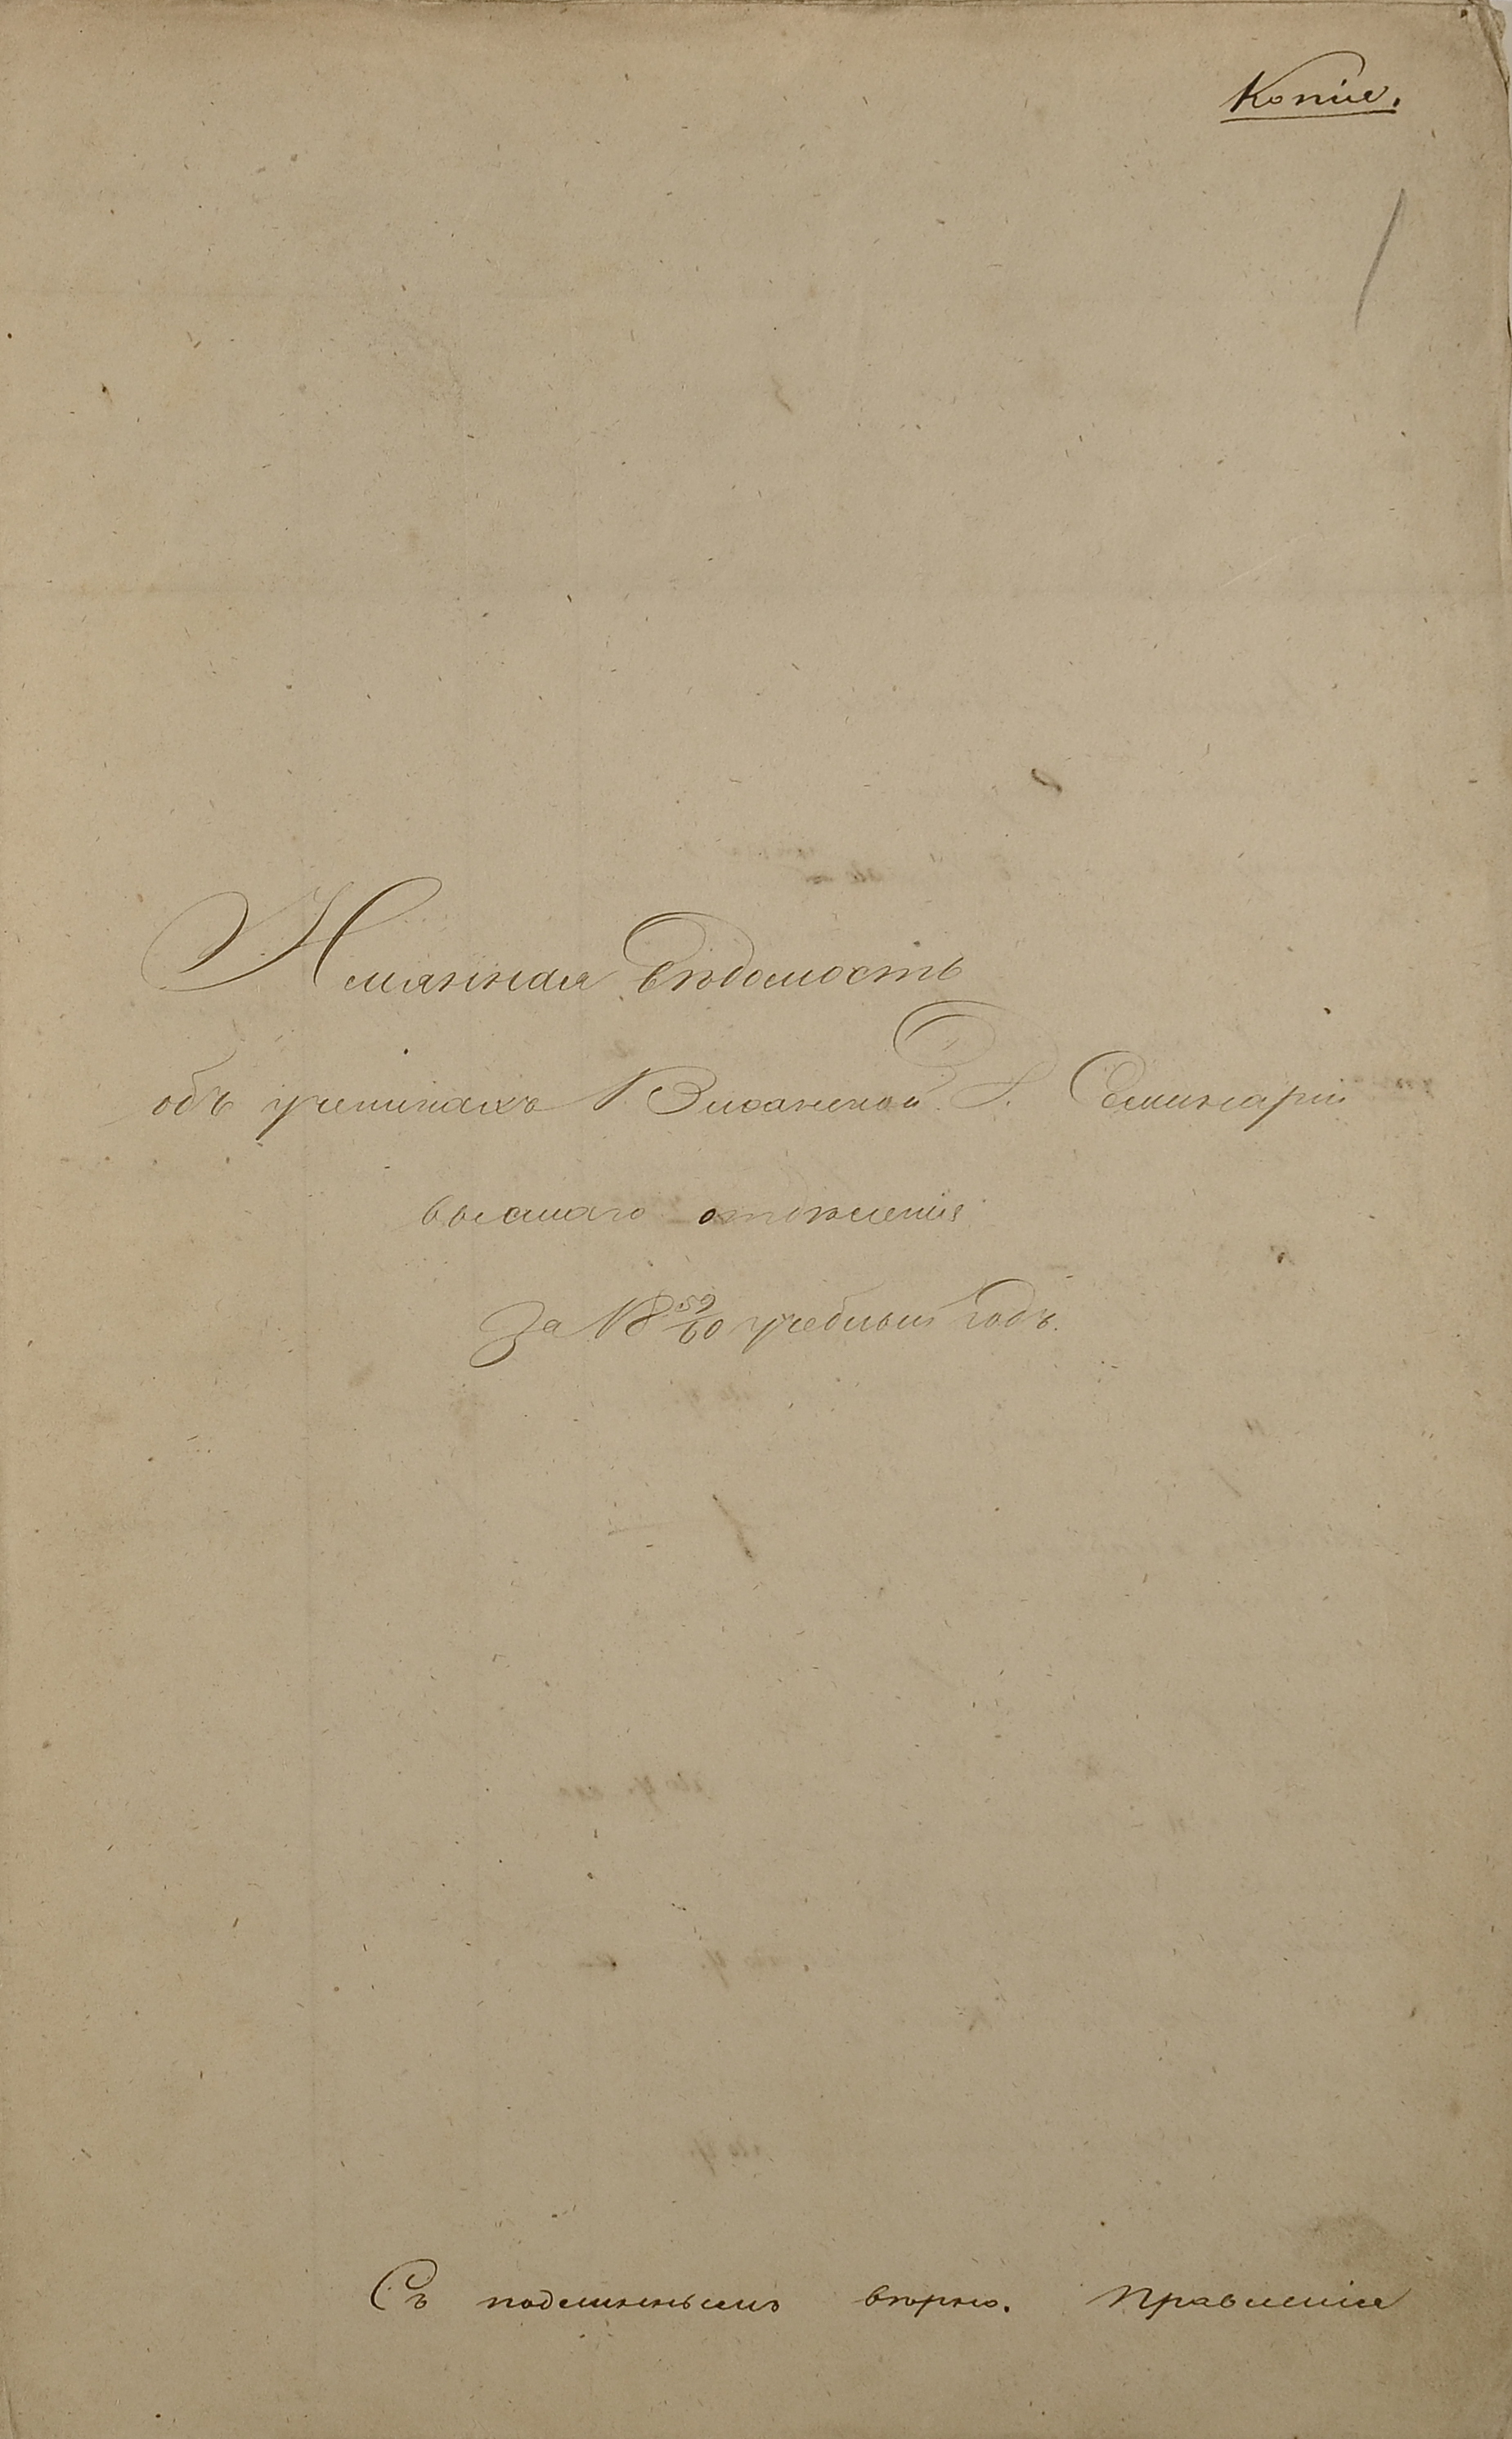 Копіе.
Имянная вѣдомость
объ ученикахъ Виѳанской Д. Семинаріи
высшаго отдѣленія
За 18 59/60 учебный годъ.
Съ подлиннымъ вѣрно. Правленіе